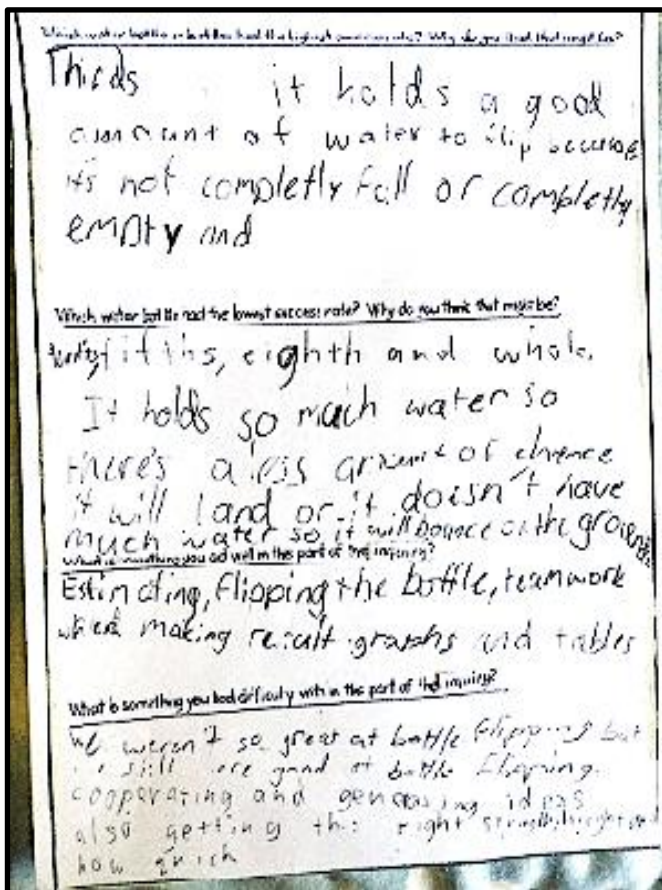 Which water bottle or bottles had the highest success rate? Why do you think that might be?
Thirds it holds a good
amount of water to flip because
its not completly full or completly
empty and
Which water bottle had the lowest success rate? Why do you think that might be?
fifths, eighth and whole.
It holds so much water so
there's a less amount of chance
it will land or it doesn't have
much water so it will bounce on the ground
What is something you did well in this part of the inquiry?
Estimating, flipping the bottle, teamwork
making result graphs and tables
What is something you had difficulty with in this part of the inquiry?
We weren't so great at bottle flipping but
still are good at bottle flipping.
cooperating and generating ideas
also getting the right
how quick